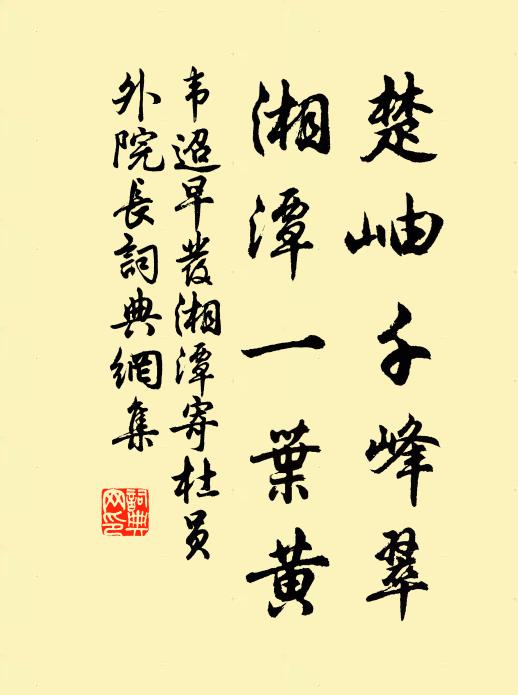 楚岫千峰翠
湘潭一葉黄
韦迢早發湘潭寄杜员
外院長詞典網集
詞典
网印